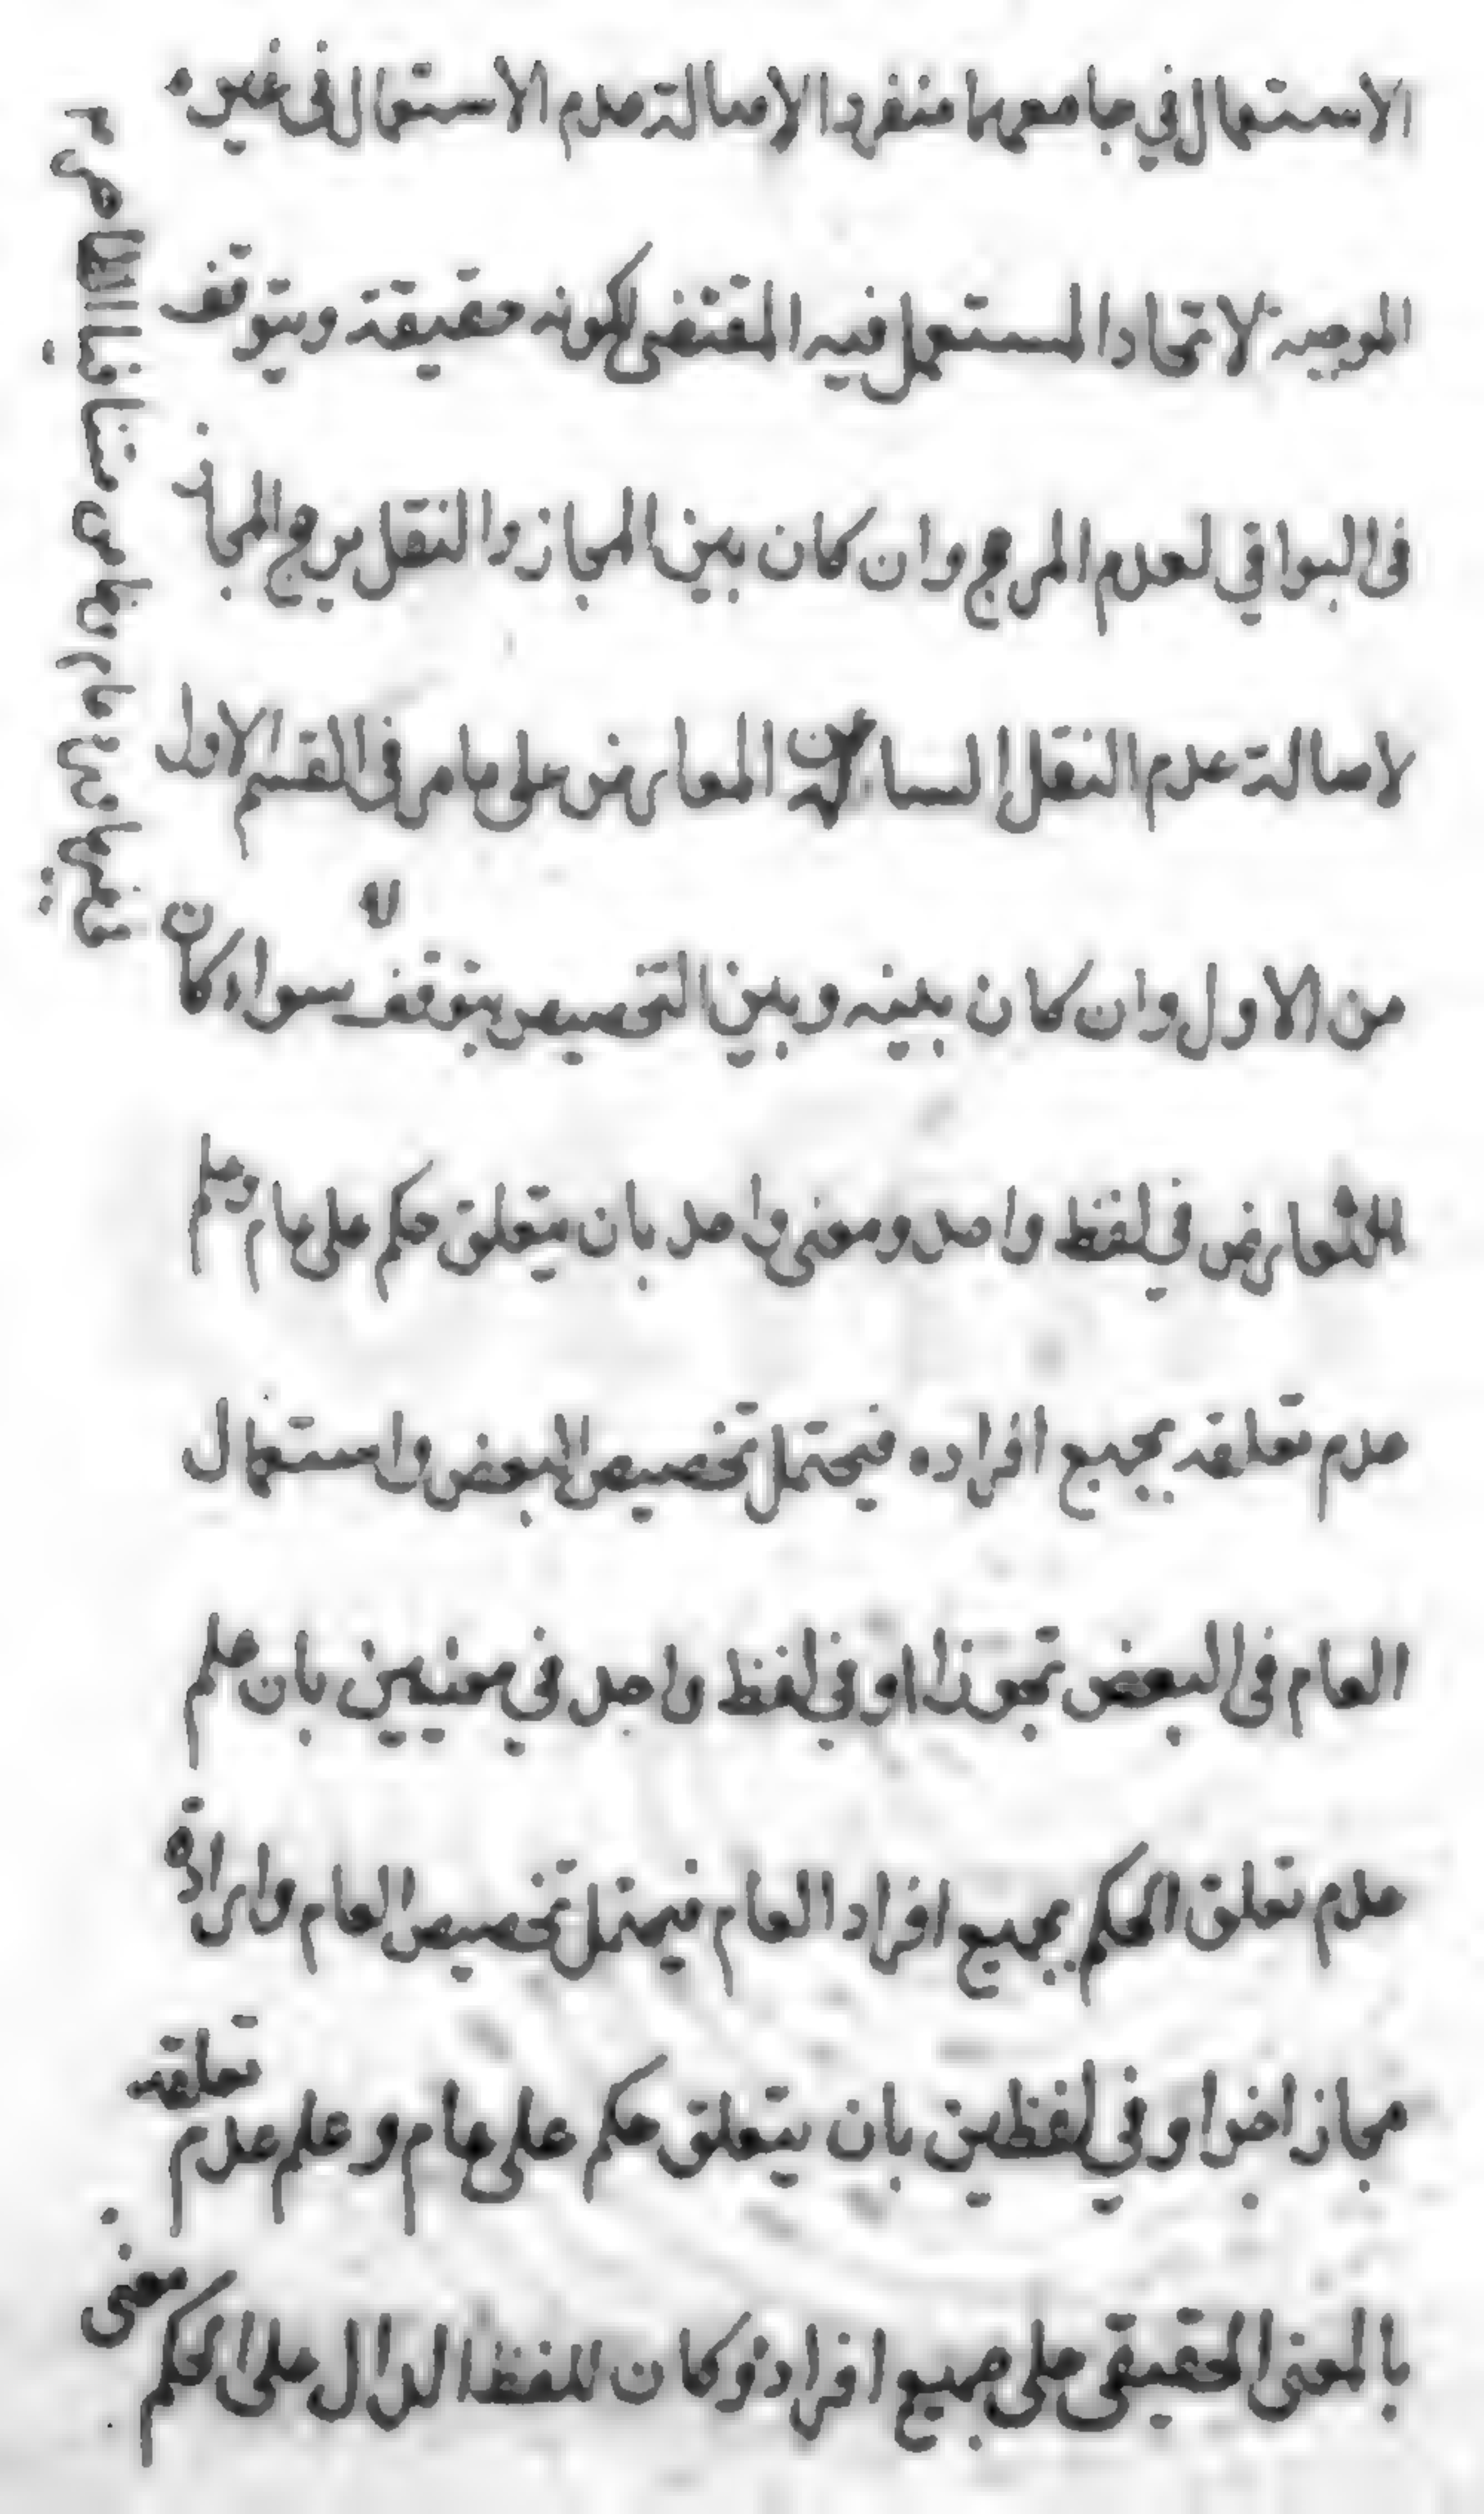 الاستعمال في جامعهما منفردا لاصالة عدم الاستعمال في غيره
الموجبة لاتحاد المستعمل فيه المقتضى لكونه حقيقة ويتوقف
فى البواقي لعدم المرجح وان كان بين المجاز والنقل يرجح المجاز
لاصالة عدم النقل السالمة عن المعارض على ما مر فى القسم الاول
من الاول وان كان بينه وبين التخصيص يتوقف سواء كان
التعارض في لفظ واحد ومعنى واحد بان يتعلق حكم على عام وعلم
عدم تعلقه بجميع افراده فيحتمل تخصيص البعض واستعمال
العام فى البعض تجوزا او في لفظ واحد في معنيين بان علم
عدم تعلق الحكم بجميع افراد العام فيحتمل تخصيص العام وارادة
مجاز اخر او في لفظين بان يتعلق حكم على عام وعلم عدم تعلقه
بالمعنى الحقيقى على جميع افراده وكان للفظ الدال على الحكم معنى